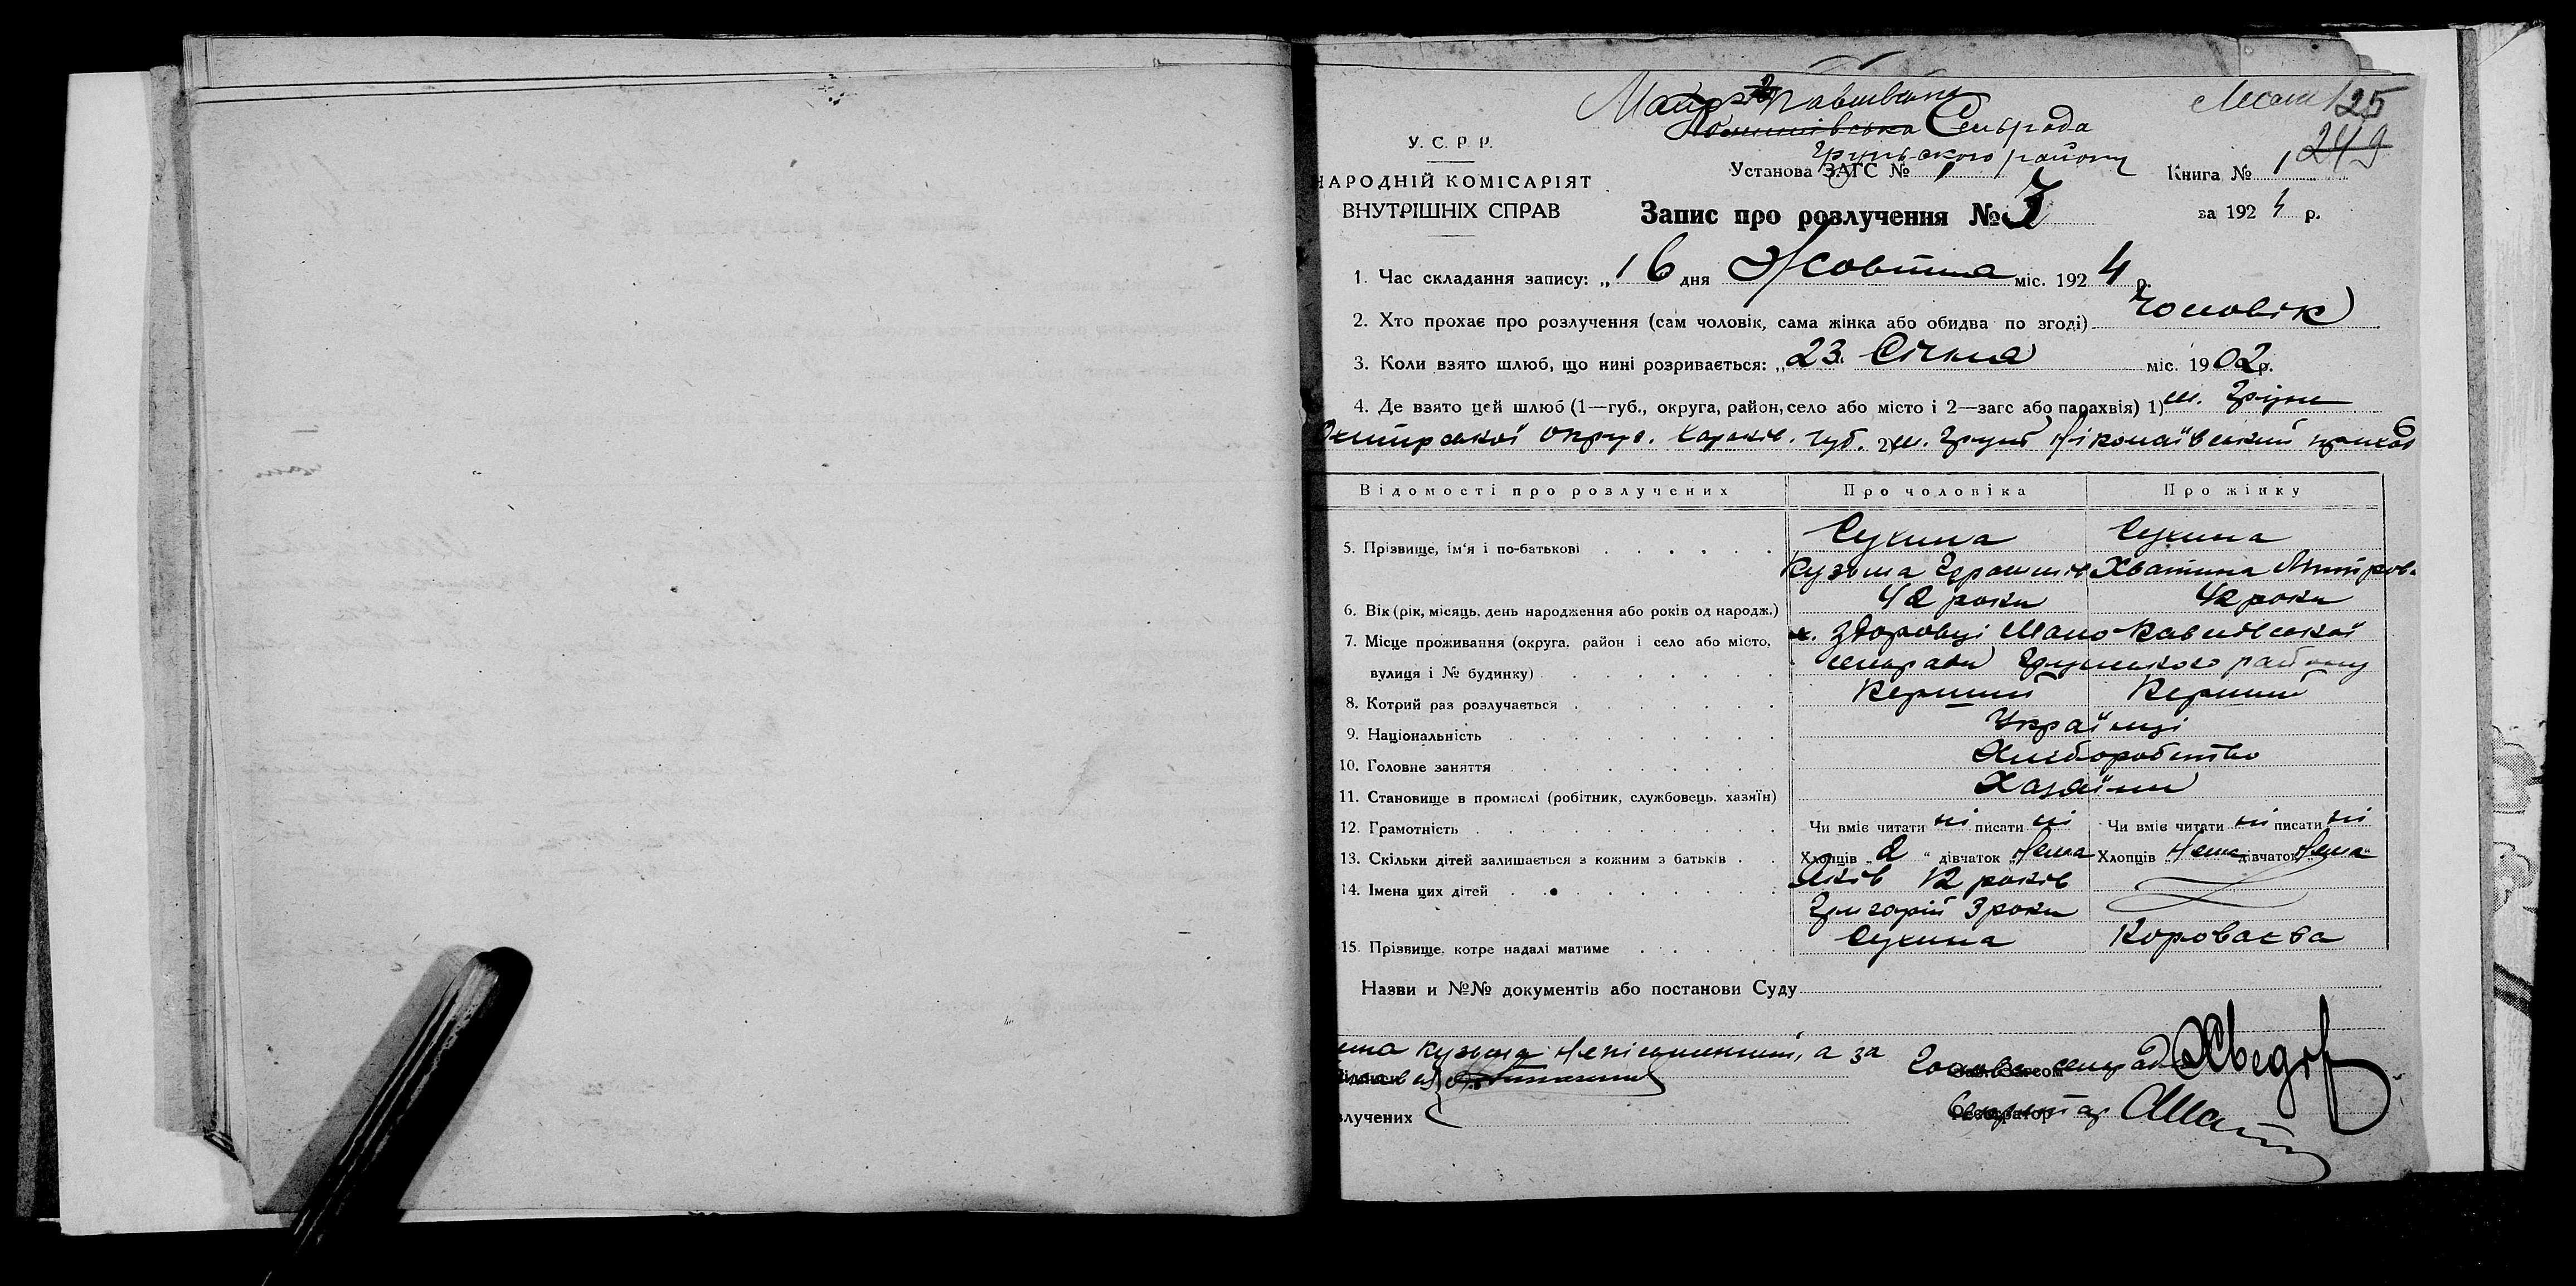 125
Сельрада
249
У. С. Р. Р.
Грунського району
Установа ЗАГС № 1 Книга № 1
НАРОДНІЙ КОМІСАРІЯТ
ВНУТРІШНІХ СПРАВ
Запис про розлучення № 3 за 1924 р.
1. Час складання запису: „16 дня Жовтня міс. 1924 р.
2. Хто прохає про розлучення (сам чоловік, сама жінка або обидва по згоді) Чоловік
3. Коли взято шлюб, що нині розривається: „23 Січня міс. 1902 р.
4. Де взято цей шлюб (1—губ., округа, район, село або місто і 2—загс або парахвія) 1) м. Грунь
округ. Харьків. губ. 2) м. Грунь Ніколаївський приход
Відомості про розлучених Про чоловіка Про жінку
5. Прізвище, ім'я і по-батькові Сухина Сухина
Кузьма Хватина Дмитров.
6. Вік (рік, місяць, день народження або років од народж.) 42 роки 42 роки
7. Місце проживання (округа, район і село або місто, х. Здоровці Мало Павлівської
вулиця і № будинку) сельради Грунського району
8. Котрий раз розлучається Перший Перший
9. Національність Українці
10. Головне заняття Хліборобство
11. Становище в промислі (робітник, службовець, хазяїн) Хазяїни
12. Грамотність Чи вміє читати ні писати ні Чи вміє читати ні писати ні
13. Скільки дітей залишається з кожним з батьків Хлопців „2" дівчаток „Нема Хлопців „Нема дівчаток „Нема"
14. Імена цих дітей Яків 12 років
Григорій 3 роки
15. Прізвище, котре надалі матиме Сухина Короваєва
Назви и №№ документів або постанови Суду
Кузьма Неписьменний, а за
Голова сельради
Зав. Загсом
Секретар
Реєстратор
злучених